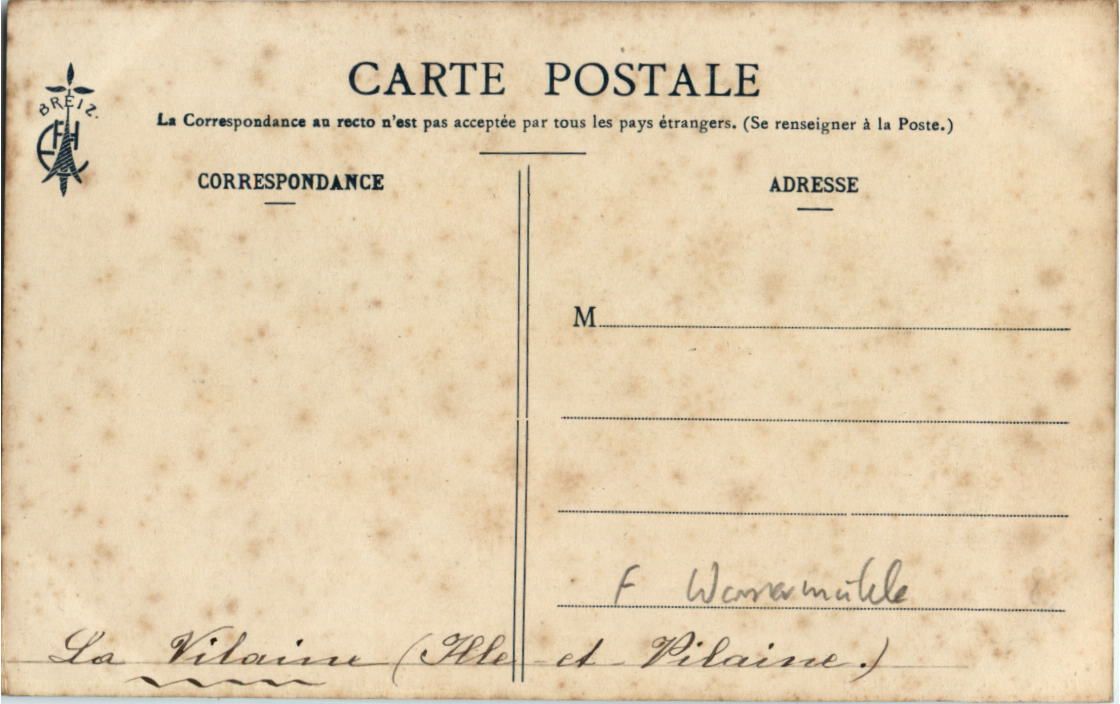 CARTE POSTALE
BREIZ
La Correspondance au recto n'est pas acceptée par tous les pays étrangers. (Se renseigner à la Poste.)
CORRESPONDANCE
ADRESSE
M
F Wassermühle
La Vilaine (Ille et Vilaine.)